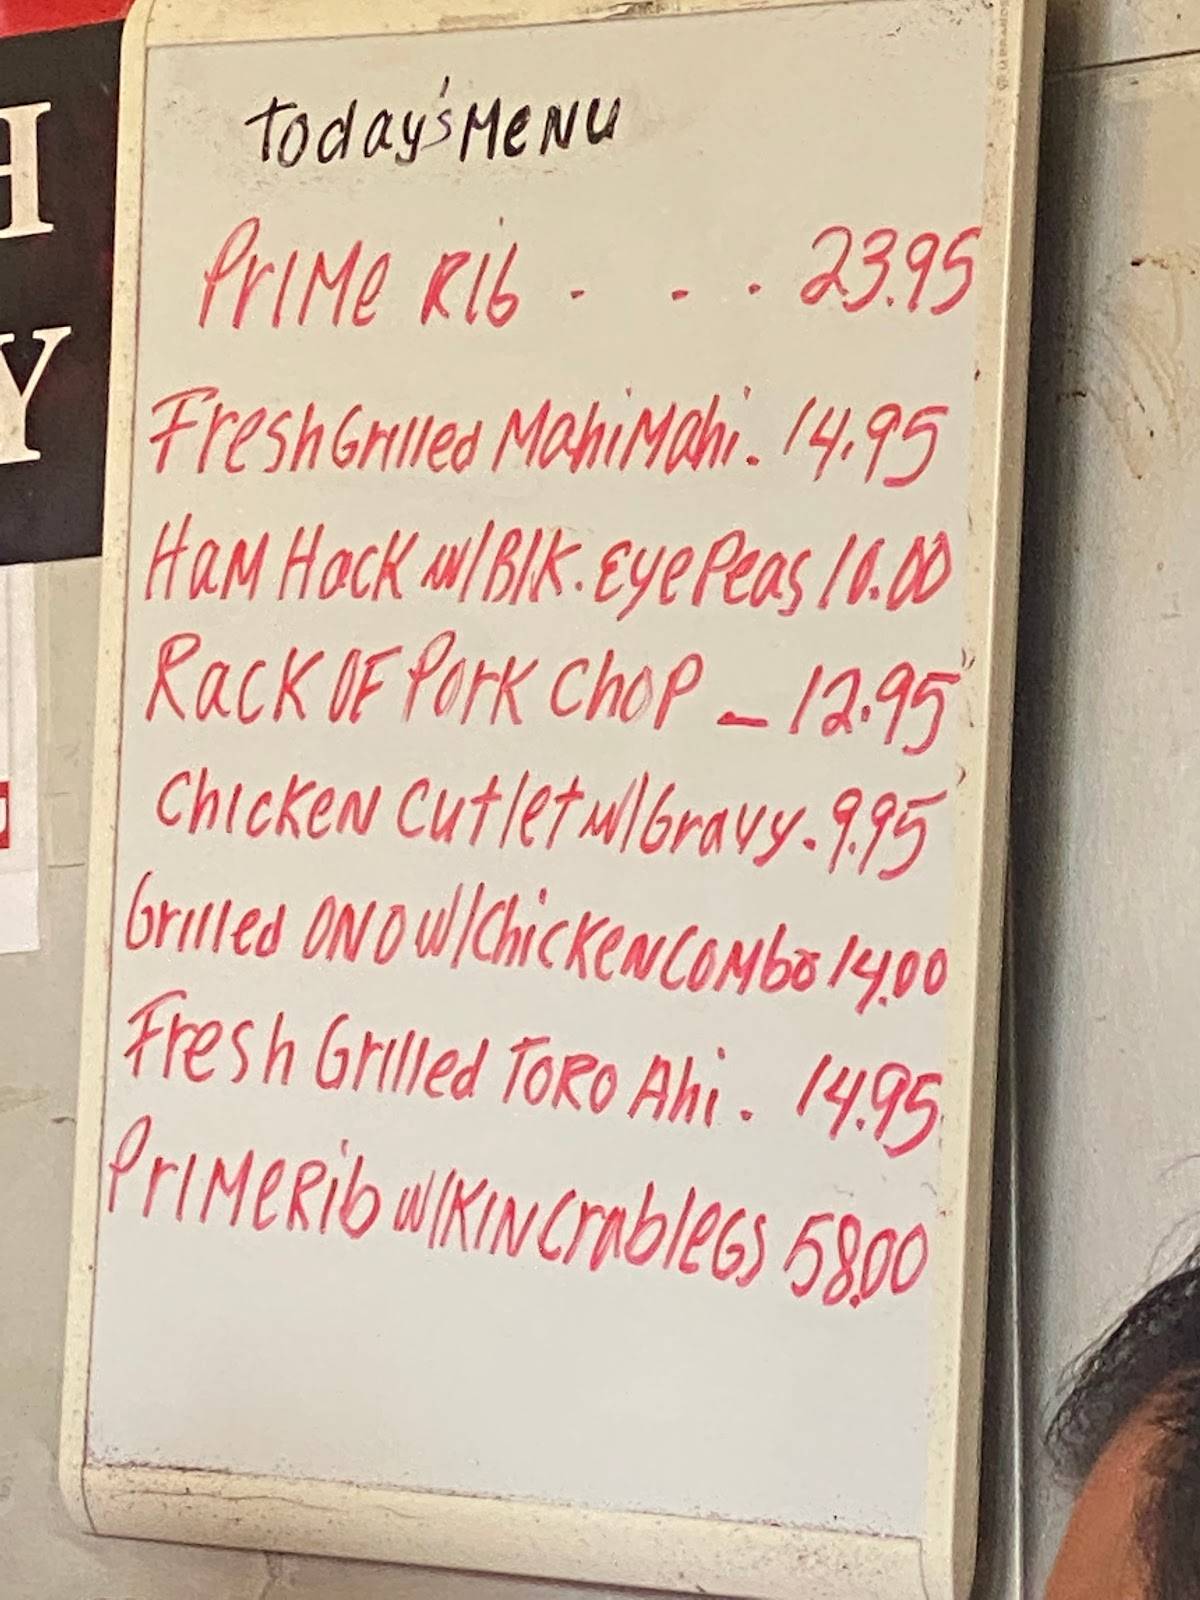 H
Y
Today's Menu
Prime Rib - - - 23.95
Fresh Grilled Mahi Mahi. 14.95
Ham Hock w/Blk. Eye Peas 10.00
Rack OF Pork Chop - 12.95
Chicken Cutlet w/Gravy. 9.95
Grilled ONO w/Chicken Combo 14.00
Fresh Grilled Toro Ahi. 14.95
Prime Rib w/Kin Crab legs 58.00